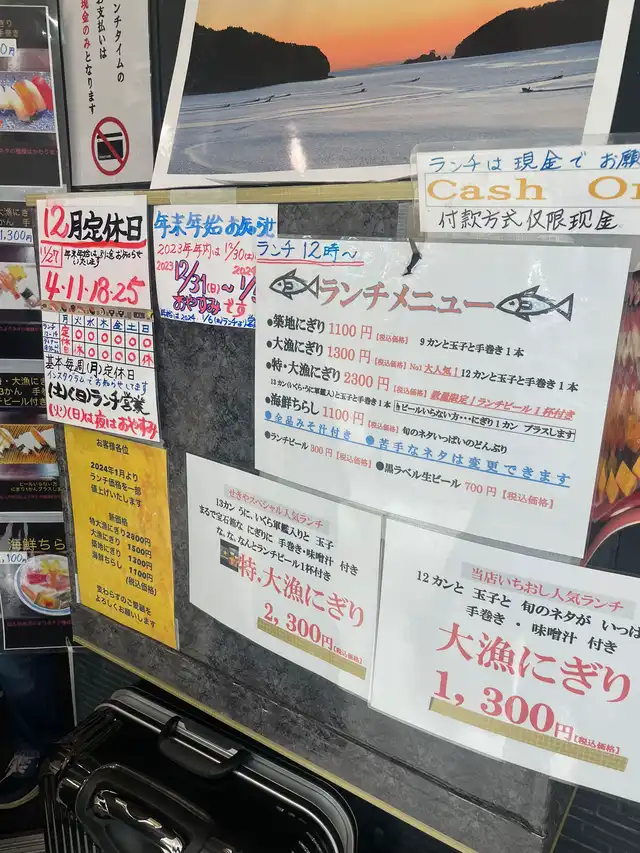 ランチタイムの
お支払いは
現金のみとなります
ランチは現金でお願
Cash On
付款方式仅限现金
12月定休日
年末年始は別に名お知らせ
4・11・18・25
月火水木金土日
基本毎週(月)定休日
インスタグラムでお知らせしてます
(土)(日)ランチ営業
(火)(日)は夜はおやすみ
年末年始お知らせ
2023年年内は12/30(土)
12/31(日)〜
おやすみです
ランチ12時〜
ランチメニュー
●築地にぎり 1100円【税込価格】 9カンと玉子と手巻き1本
●大漁にぎり 1300円【税込価格】No1大人気!12カンと玉子と手巻き1本
●特・大漁にぎり 2300円【税込価格】数量限定!ランチビール1杯付き
13カン(いくらうに軍艦入)と玉子と手巻き1本 ビールいらない方・・・にぎり1カン プラスします
●海鮮ちらし 1100円【税込価格】旬のネタいっぱいのどんぶり
●全品みそ汁付き ●苦手なネタは変更できます
●ランチビール 300円【税込価格】 ●黒ラベル生ビール 700円【税込価格】
お客様各位
2024年1月より
ランチ価格を一部
値上げいたします
新価格
特大漁にぎり2800円
大漁にぎり 1500円
築地にぎり 1300円
海鮮ちらし 1100円
(税込価格)
変わらずのご愛顧を
よろしくお願いします
せきやスペシャル人気ランチ
13カン うに、いくら軍艦入り と 玉子
まるで宝石箱な にぎりに 手巻き・味噌汁 付き
な、な、なんとランチビール1杯付き
特.大漁にぎり
2,300円【税込価格】
当店いちおし人気ランチ
12カンと 玉子と 旬のネタが いっぱ
手巻き・味噌汁 付き
大漁にぎり
1,300円【税込価格】
1,300円
海鮮ちら